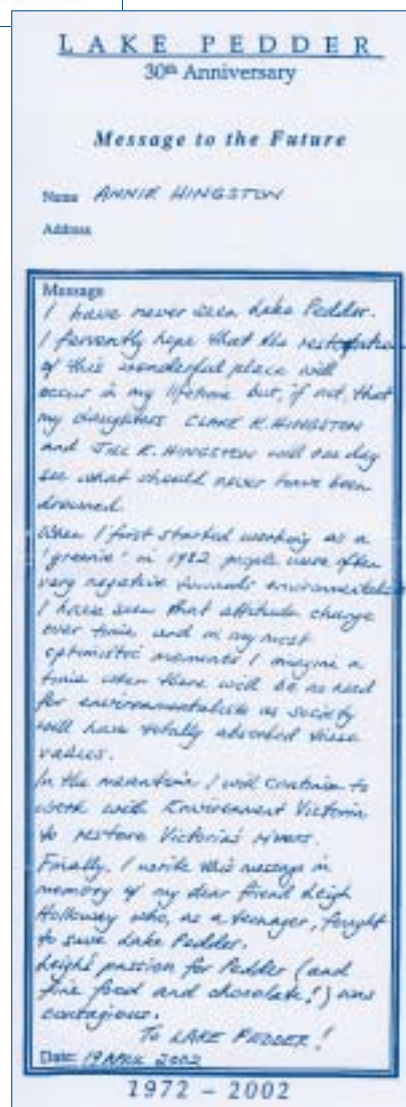 LAKE PEDDER
30th Anniversary
Message to the Future
Name ANNIE HINGSTON
Address
Message
I have never seen Lake Pedder.
I fervently hope that the restoration
of this wonderful place will
occur in my lifetime but, if not, that
my daughters CLARE K. HINGSTON
and JILL E. HINGSTON will one day
see what should never have been
drowned.
When I first started working as a
'greenie' in 1982 people were often
very negative towards environmentalists
I have seen that attitude change
over time and in my most
optimistic moments I imagine a
time when there will be no need
for environmentalists as society
will have totally absorbed these
values.
In the meantime I will continue to
work with Environment Victoria
to restore Victoria's rivers.
Finally, I write this message in
memory of my dear friend Leigh
Holloway who, as a teenager, fought
to save Lake Pedder.
Leigh's passion for Pedder (and
fine food and chocolate!) was
contagious.
To LAKE PEDDER!
Date: 19 APRIL 2002
1972 – 2002